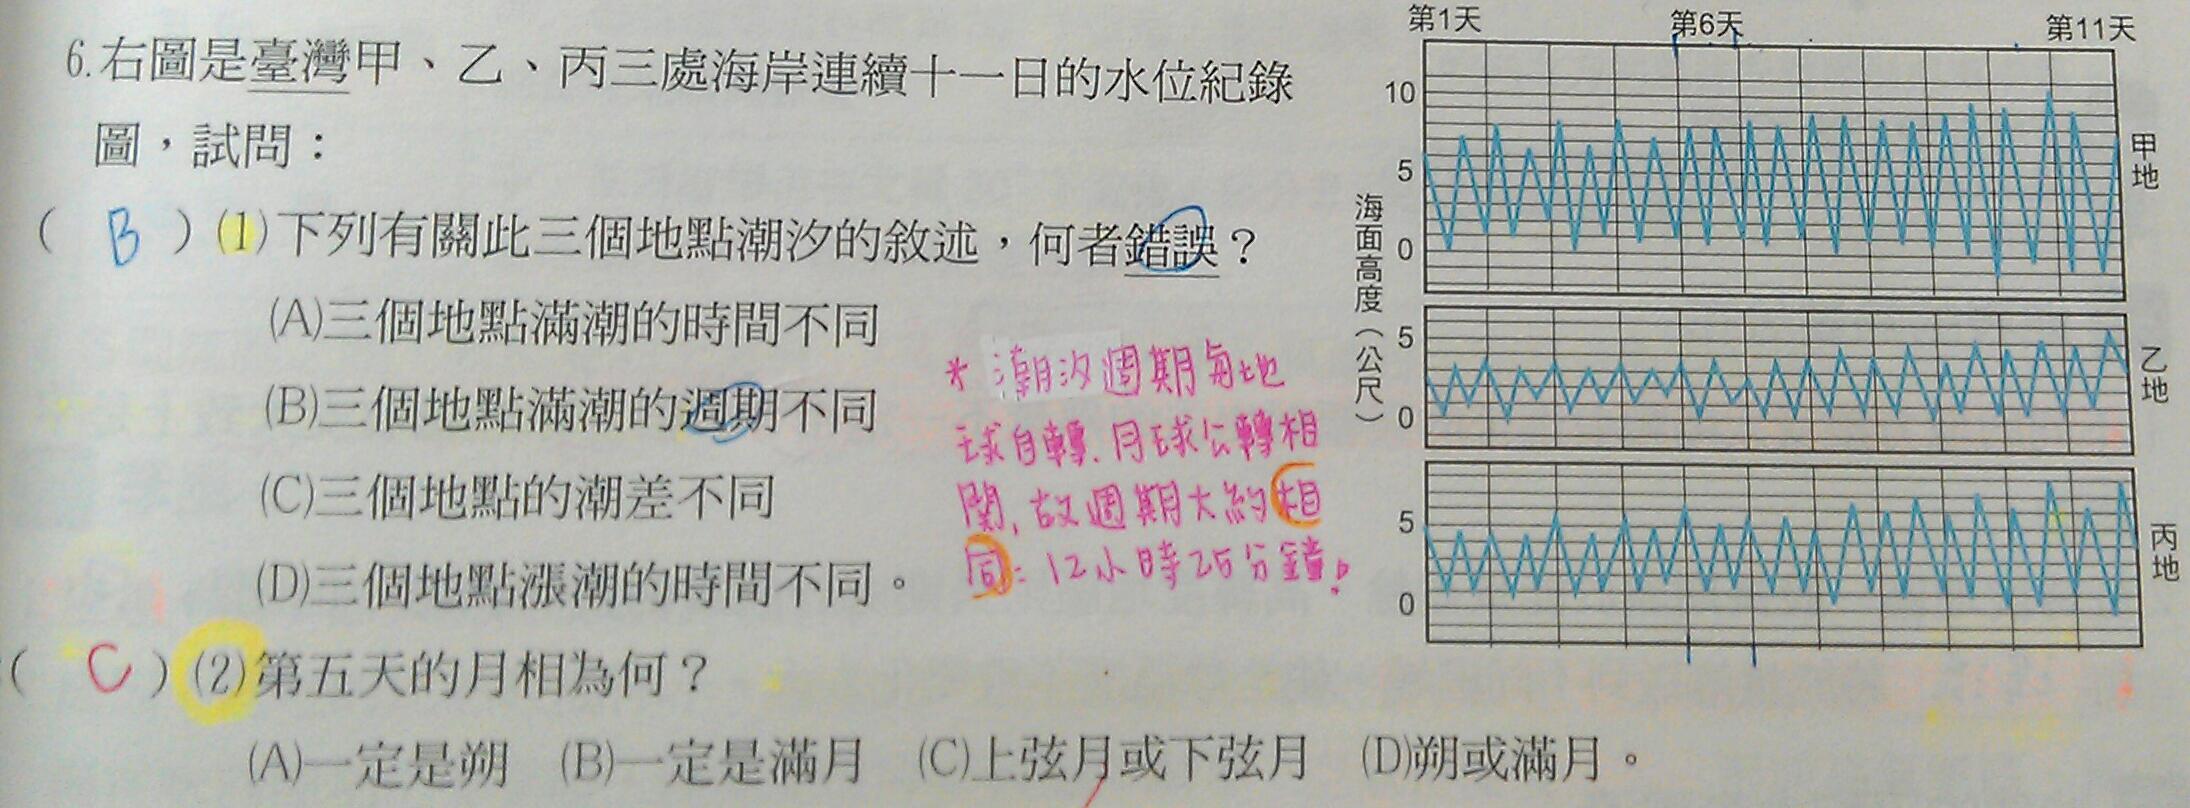 6.右圖是臺灣甲、乙、丙三處海岸連續十一日的水位紀錄
圖，試問：
( B ) (1)下列有關此三個地點潮汐的敘述，何者錯誤？
(A)三個地點滿潮的時間不同
(B)三個地點滿潮的週期不同
(C)三個地點的潮差不同
(D)三個地點漲潮的時間不同。
* 潮汐週期每地
球自轉、月球公轉相
關，故週期大約相
同：12小時25分鐘。
( C ) (2)第五天的月相為何？
(A)一定是朔 (B)一定是滿月 (C)上弦月或下弦月 (D)朔或滿月。
第1天 第6天 第11天
海面高度（公尺）
10
5
0
甲地
5
0
乙地
5
0
丙地